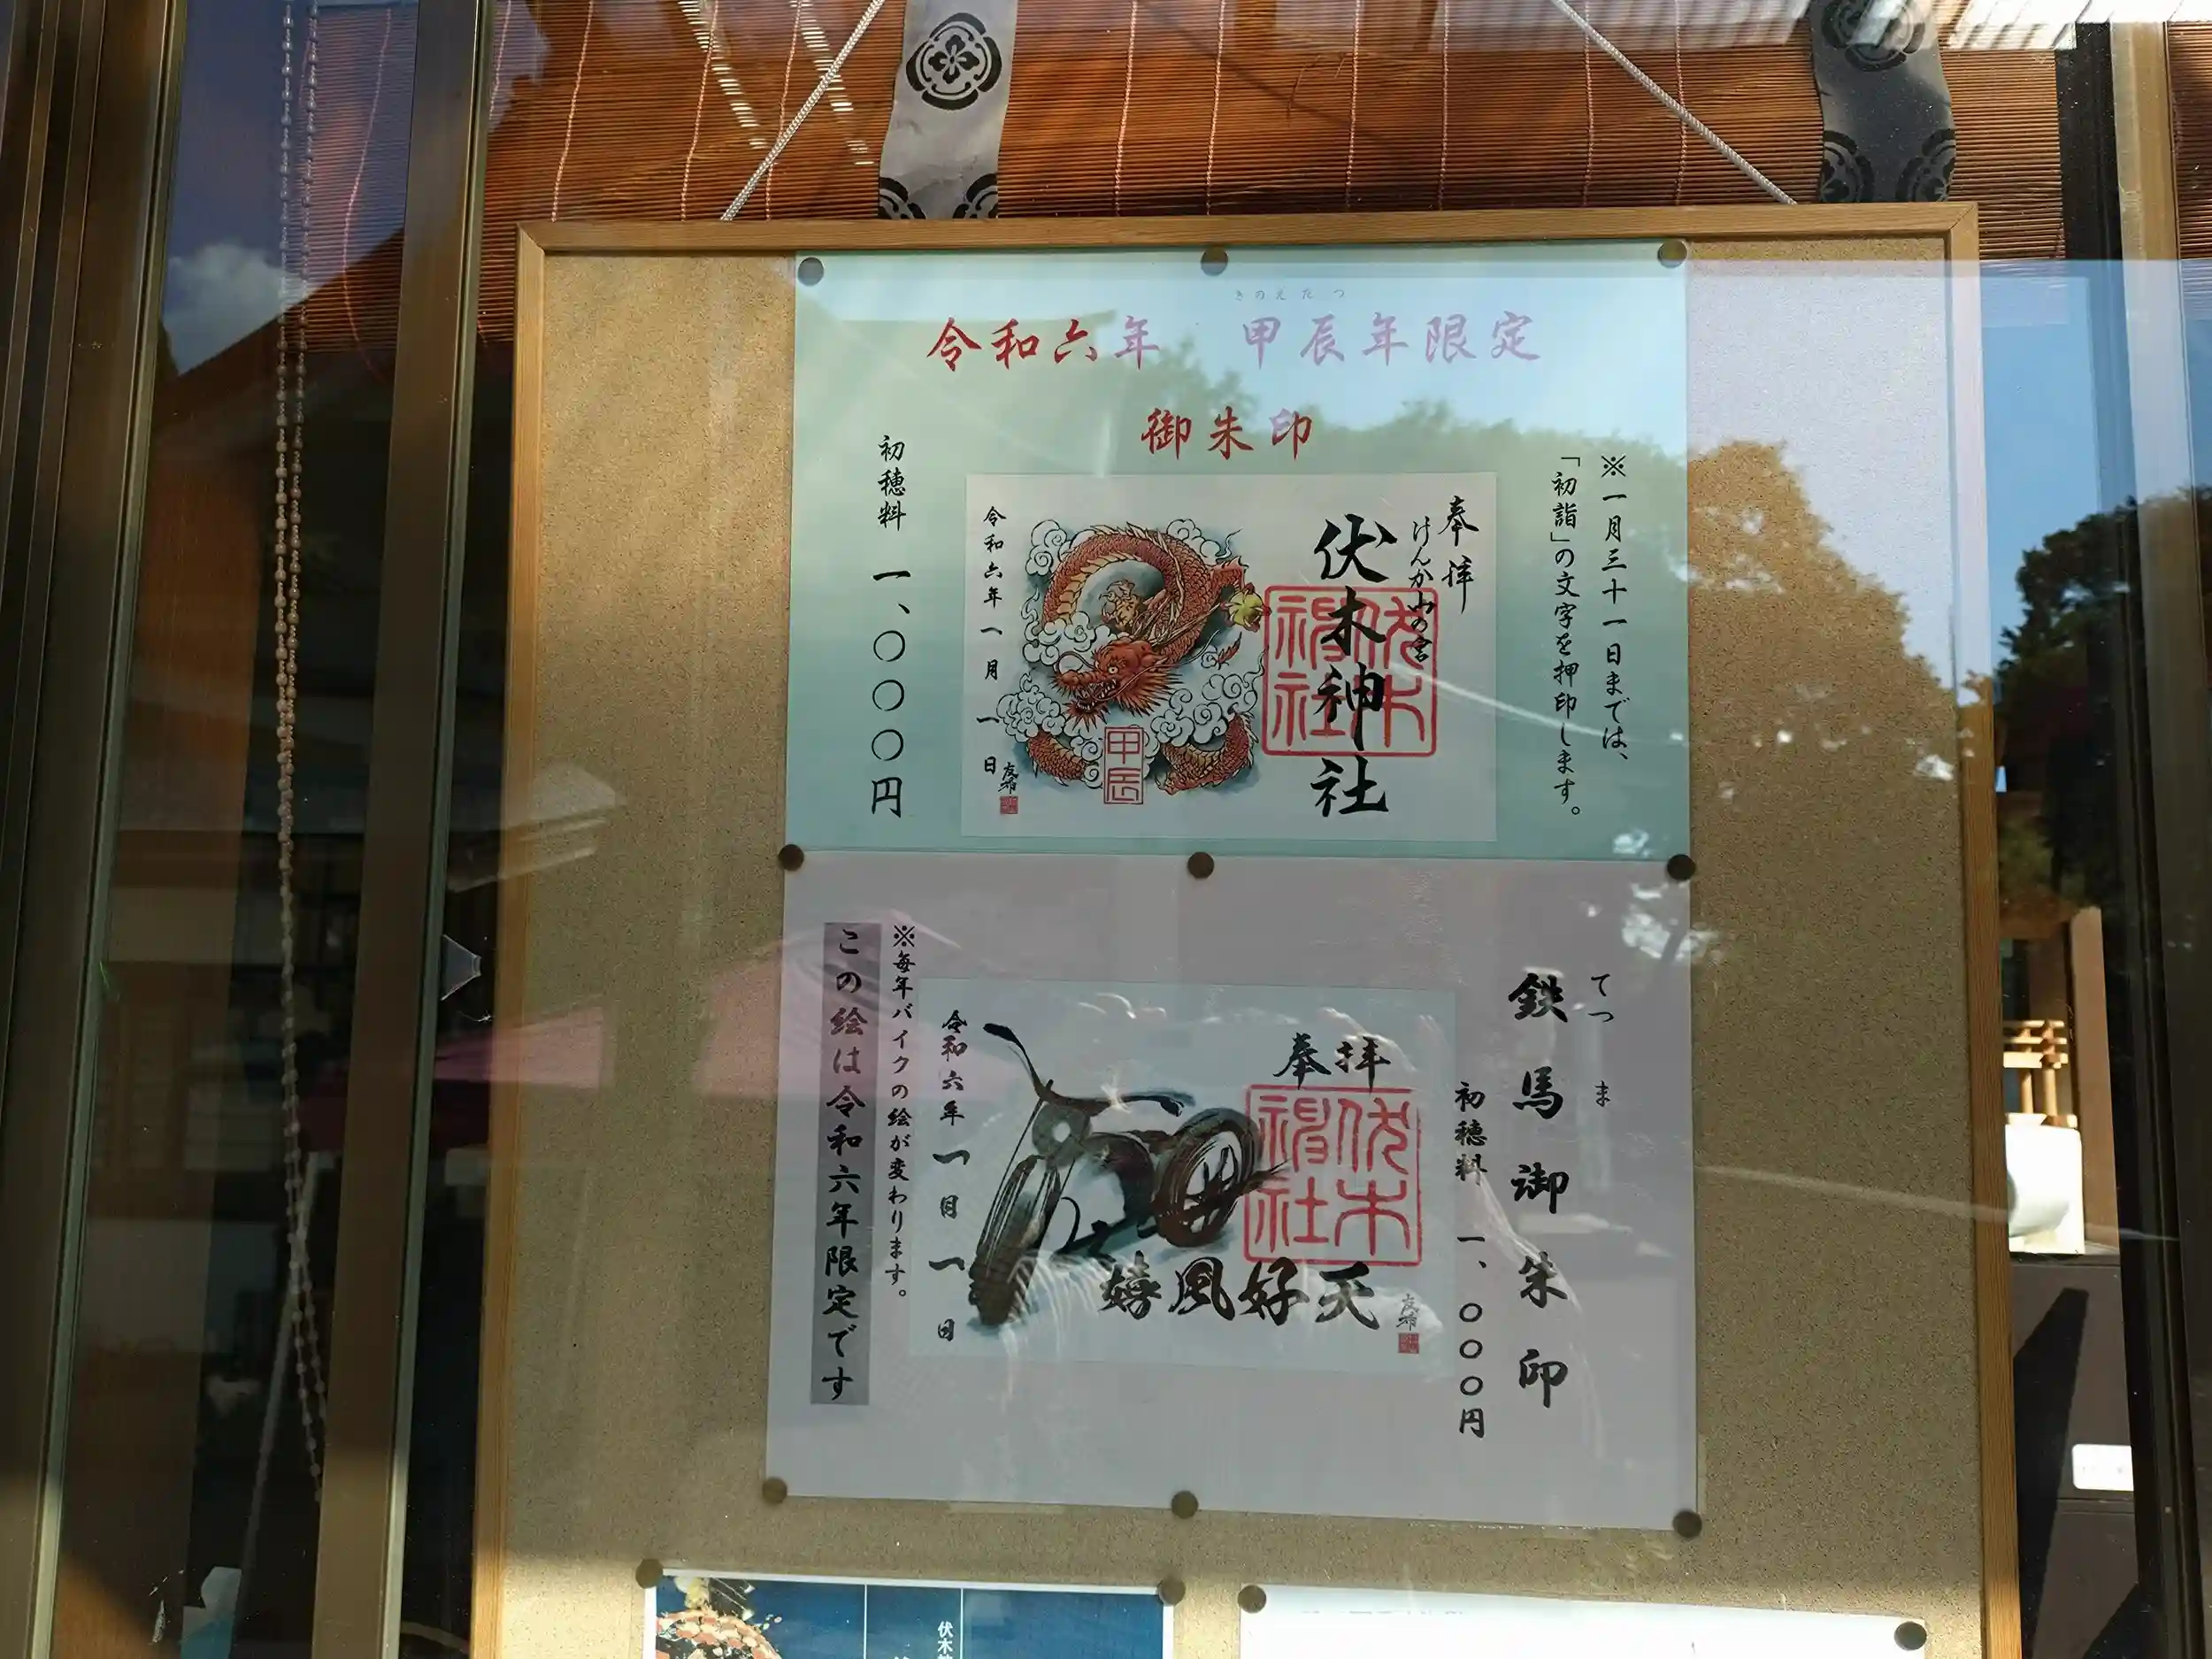 きのえたつ
令和六年 甲辰年限定
御朱印
※一月三十一日までは、
「初詣」の文字を押印します。
奉拝
けんか山の宮
伏木神社
伏木
神社
甲辰
令和六年一月一日
友希
初穂料 一、〇〇〇円
てつ ま
鉄馬御朱印
初穂料 一、〇〇〇円
奉拝
伏木
神社
嬉風好天
友希
令和六年一月一日
※毎年バイクの絵が変わります。
この絵は令和六年限定です